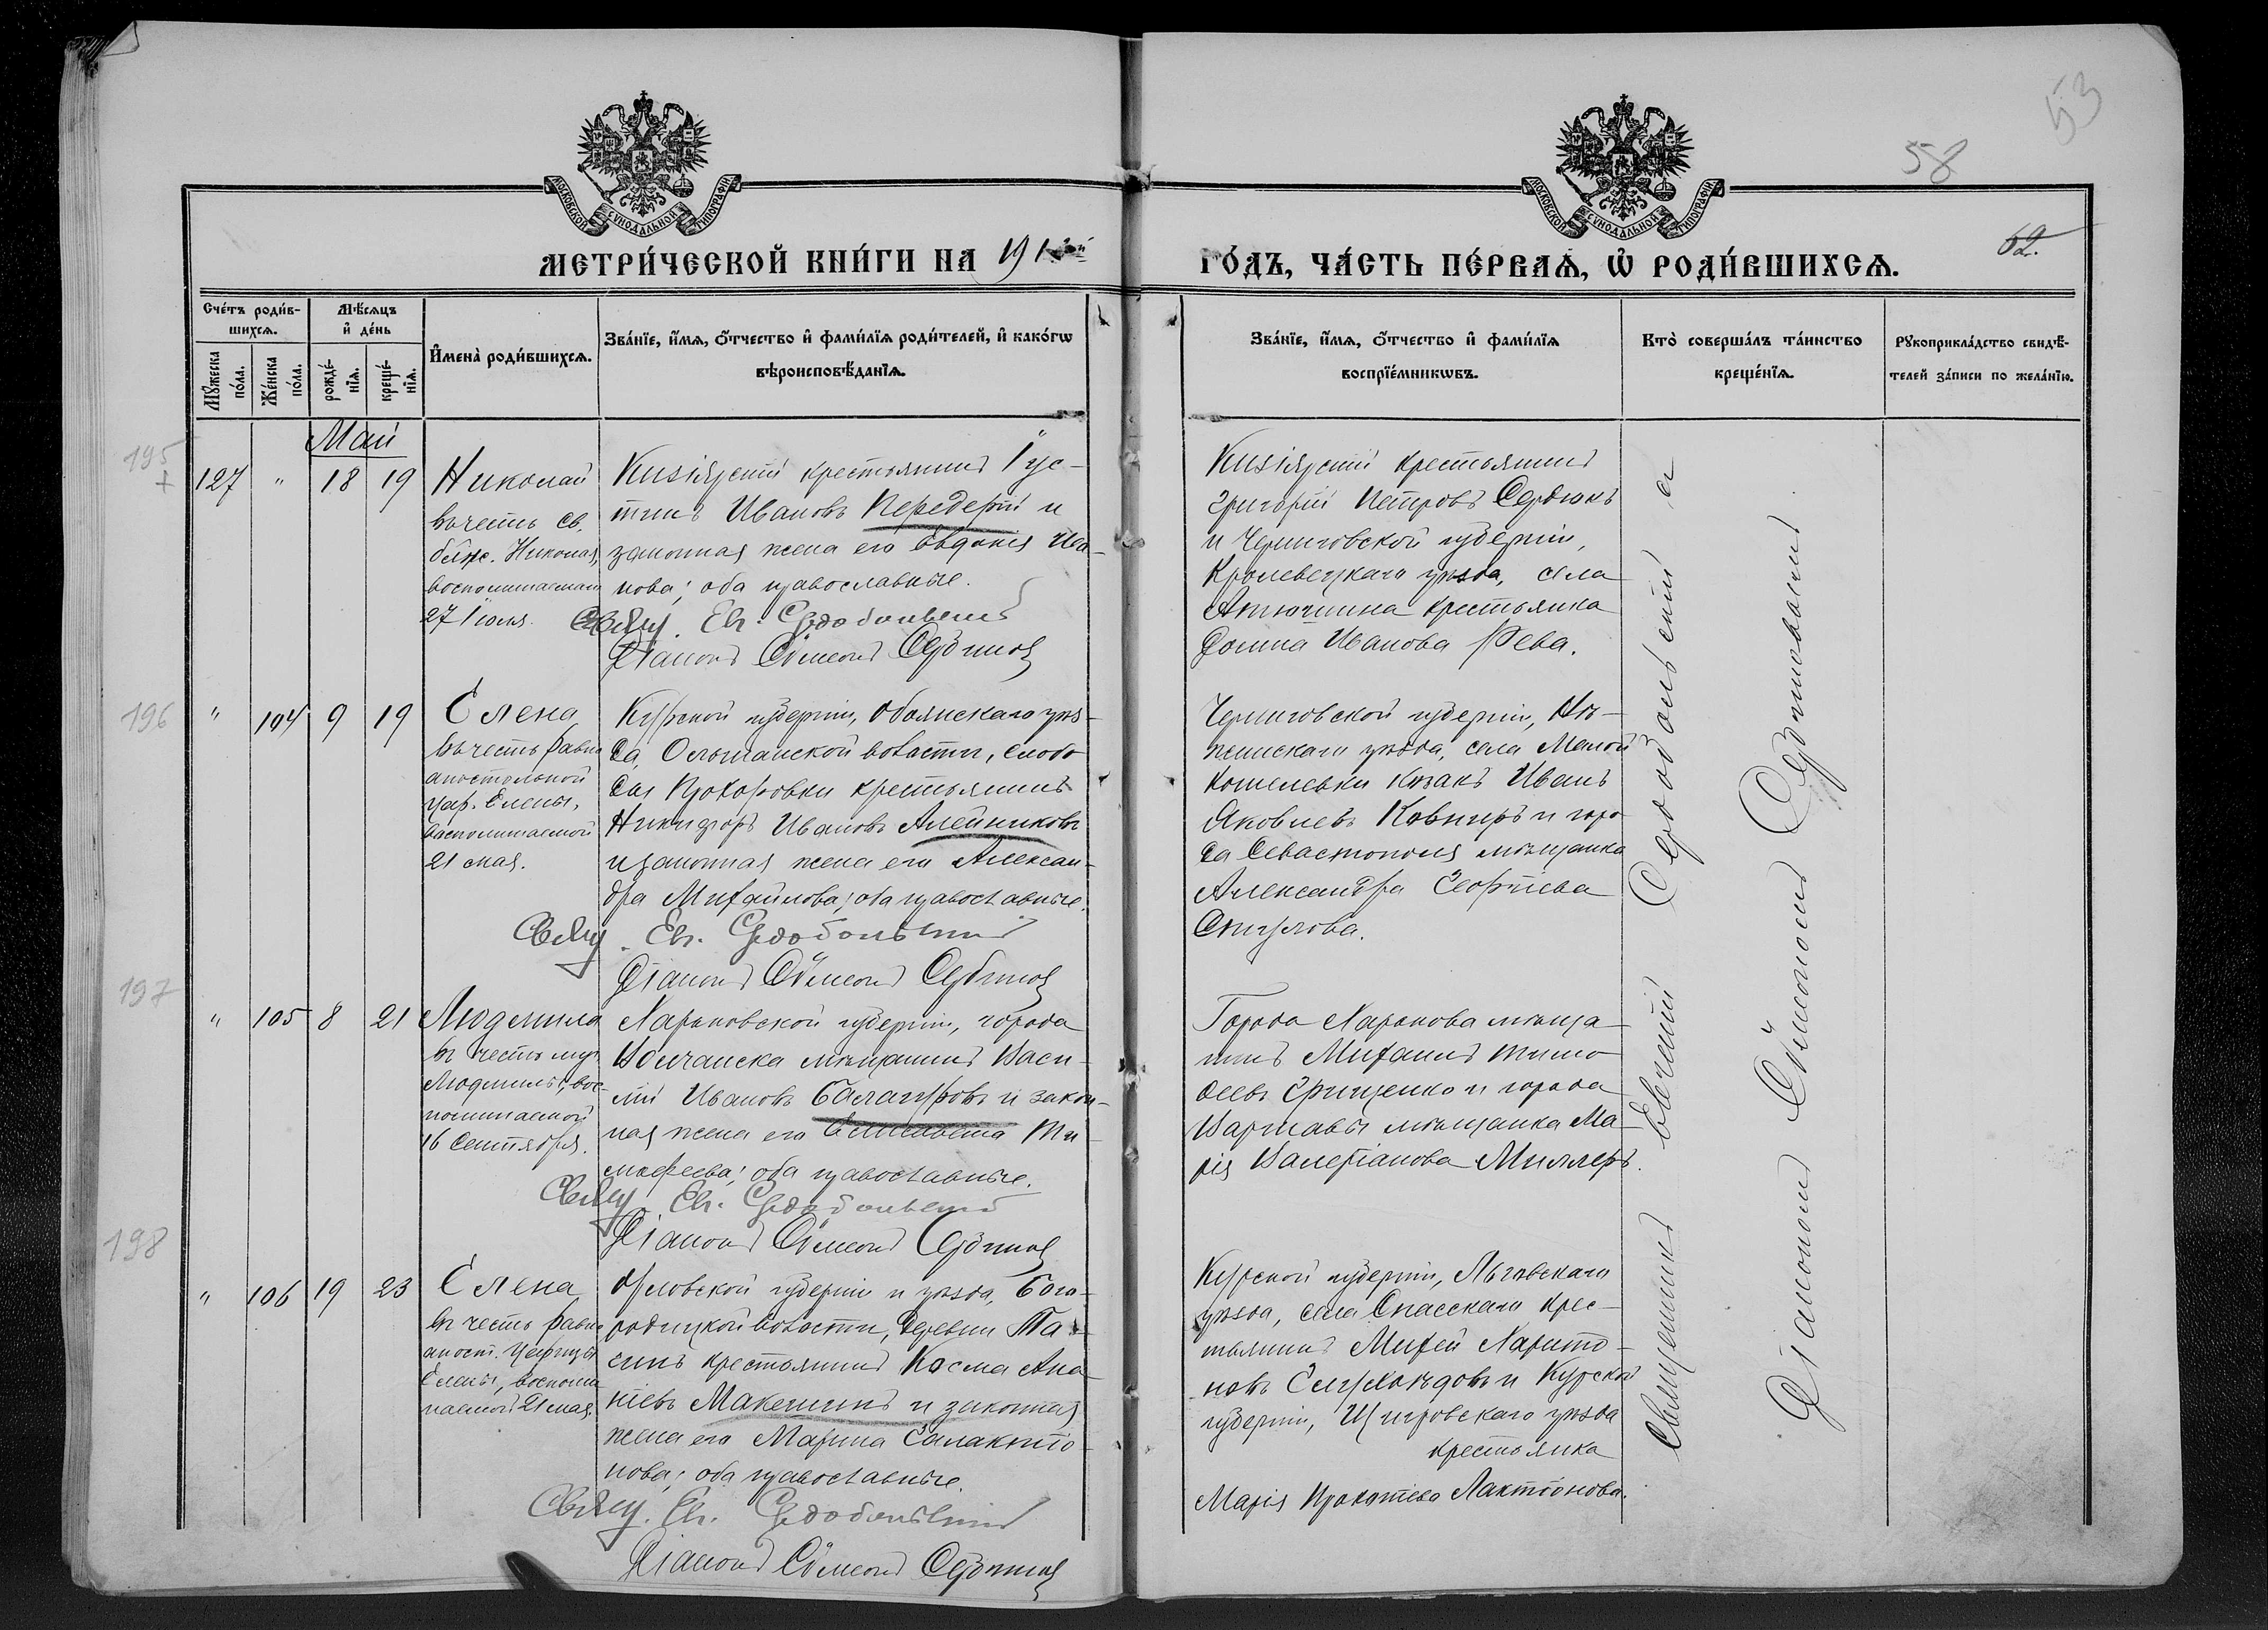 53
58
62.
МОСКОВСКОЙ СУНОДАЛЬНОЙ ТИПОГРАФІИ
МОСКОВСКОЙ СУНОДАЛЬНОЙ ТИПОГРАФІИ
МЕТРИ́ЧЕСКОЙ КНИ́ГИ НА 191
ГО́ДЪ, ЧА́СТЬ ПЕ́РВАѦ, Ѡ҆ РОДИ́ВШИХСѦ.
Сче́тъ роди́в-
шихсѧ.
Мꙋ́жеска по́ла.
Же́нска по́ла.
Мѣ́сѧцъ
и҆ де́нь
рожде́-
нїѧ.
креще́-
нїѧ.
И҆мена̀ роди́вшихсѧ.
Зва́нїе, и҆́мѧ, ѻ҆́тчество и҆ фами́лїѧ роди́телей, и҆ како́гѡ
вѣроисповѣ́данїѧ.
Зва́нїе, и҆́мѧ, ѻ҆́тчество и҆ фами́лїѧ
воспрїе́мникѡвъ.
Кто̀ соверша́лъ та́инство
креще́нїѧ.
Рꙋкоприкла́дство свидѣ́-
телей за́писи по жела́нїю.
Май
195
127 " 18 19
Николай
въ честь св.
блаж. Николая,
воспоминаемаго
27 Іюля.
Кизіярскій крестьянинъ Іус-
тинъ Ивановъ Передерій и
законная жена его Евдокія Ива-
нова; оба православные.
Свящ. Ев. Сердобольскій
Діаконъ Сѵмеонъ
Кизіярскій крестьянинъ
Григорій Петровъ Сердюкъ
и Черниговской губерніи,
Кролевецкаго уѣзда, села
крестьянка
Домна Иванова Рева.
196
" 104 9 19
Елена
въ честь равно
апостольной
цар. Елены,
воспоминаемой
21 мая.
Курской губерніи, Обоянскаго уѣз-
да, Ольшанской волости, слобо
ды Прохоровки крестьянинъ
Никифоръ Ивановъ Алейниковъ
и законная жена его Алексан-
дра Михайлова; оба православные.
Свящ. Ев. Сердобольскій
Діаконъ Сѵмеонъ
Черниговской губерніи, Нѣ-
жинскаго уѣзда, села Малой
Кошелевки козакъ Иванъ
Яковлевъ Ковниръ и горо-
да Севастополя мѣщанка
Александра Георгіева
197
" 105 8 21
Людмила
въ честь муч.
Людмилы, вос-
поминаемой
16 Сентября.
Харьковской губерніи, города
Волчанска мѣщанинъ Васи-
лій Ивановъ Балануровъ и закон-
ная жена его Елисавета Ти-
моѳеева; оба православные.
Свящ. Ев. Сердобольскій
Діаконъ Сѵмеонъ
Города Харькова мѣща-
нинъ Михаилъ Тимо-
ѳеевъ Грищенко и города
Варшавы мѣщанка Ма-
рія Валеріанова Миллеръ.
198
" 106 19 23
Елена
въ честь равно
апост. Царицы
Елены, воспоми
наемой 21 мая.
Орловской губерніи и уѣзда, Бого-
родицкой волости, деревни
крестьянинъ Косма Ана-
ніевъ Макешинъ и законная
жена его Марина Галактіо-
нова; оба православные.
Свящ. Ев. Сердобольскій
Діаконъ Сѵмеонъ
Курской губерніи, Льговскаго
уѣзда, села Спасскаго крес-
тьянинъ Михей Харито-
новъ и Курской
губерніи, Щигровскаго уѣзда
крестьянка
Марія Лактіонова.
Священникъ Евгеній Сердобольскій съ
Діакономъ Сѵмеономъ